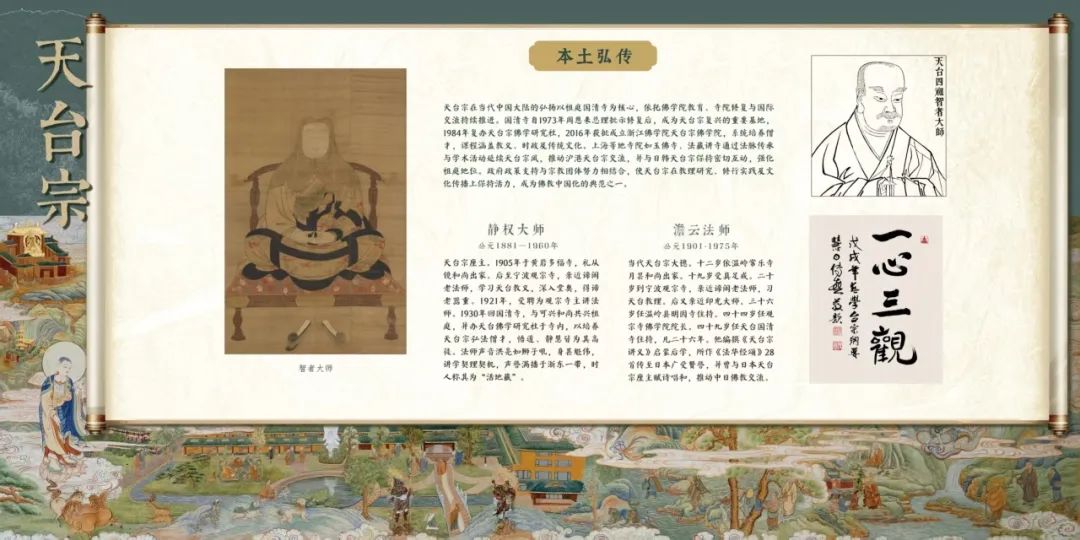 天台宗
本土弘传
天台宗在当代中国大陆的弘扬以祖庭国清寺为核心，依托佛学院教育、寺院修复与国际
交流持续推进。国清寺自1973年周恩来总理批示修复后，成为天台宗复兴的重要基地，
1984年复办天台宗佛学研究社，2016年获批成立浙江佛学院天台宗佛学院，系统培养僧
才，课程涵盖教义、时政及传统文化。上海等地寺院如玉佛寺、法藏讲寺通过法脉传承
与学术活动延续天台宗风，推动沪港天台宗交流，并与日韩天台宗保持密切互动，强化
祖庭地位。政府政策支持与宗教团体努力相结合，使天台宗在教理研究、修行实践及文
化传播上保持活力，成为佛教中国化的典范之一。
静权大师
公元1881—1960年
天台宗座主。1905年于黄岩多福寺，礼从
镜和尚出家。后至宁波观宗寺，亲近谛闲
老法师，学习天台教义，深入堂奥，得谛
老器重。1921年，受聘为观宗寺主讲法
师。1930年回国清寺，与可兴和尚共兴祖
庭，并办天台佛学研究社于寺内，以培养
天台宗弘法僧才，悟道、静慧皆为其高
徒。法师声音洪亮如狮子吼，身甚魁伟，
讲学契理契机，声誉满播于浙东一带，时
人称其为“活地藏”。
澹云法师
公元1901-1975年
当代天台宗大德。十二岁依温岭常乐寺
月昙和尚出家。十九岁受具足戒。二十
岁到宁波观宗寺，亲近谛闲老法师，习
天台教理。后又亲近印光大师。三十六
岁任温岭县明因寺住持。四十四岁任观
宗寺佛学院院长。四十九岁任天台国清
寺住持，凡二十六年。他编撰《天台宗
讲义》启蒙后学，所作《法华经颂》28
首传至日本广受赞誉，并曾与日本天台
宗座主赋诗唱和，推动中日佛教交流。
智者大师
天台四祖智者大師
一心三觀